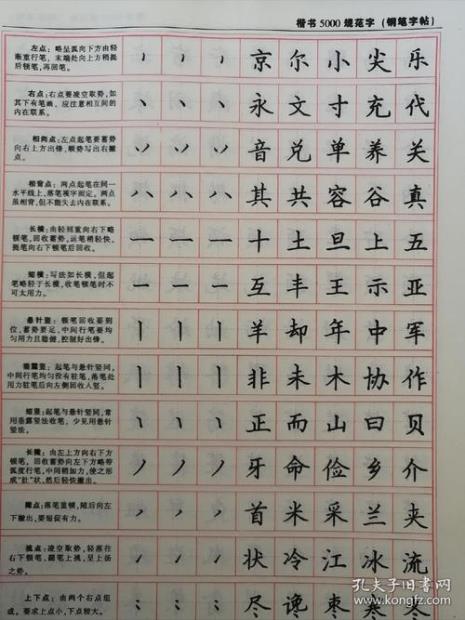 楷书5000规范字(钢笔字帖)
左点:略呈弧向下方由轻
渐重行笔,末端处向上方稍提
后顿笔,再回笔。
京尔小尖乐
右点:右点要凌空取势,如
其下有笔画,应注意相互间的
内在联系。
永文寸充代
相向点:左点起笔要蓄势
向右上方出锋,顺势写出右撇
点。
音兑单养关
相背点:两点起笔在同一
水平线上,落笔视字而定。两
点虽相背,但不能失去内在联系。
其共容谷真
长横:由轻到重向右下略
顿笔,回收蓄势,运笔稍轻快,
提笔向右下顿笔后回收。
十土旦上五
短横:写法如长横,但起
笔略轻于长横,收笔顿笔时不
可太用力。
互丰王示亚
悬针竖:顿笔回收要到
位,蓄势要足,中间行笔要均
匀用力且稳健,控制好出锋。
羊却年中军
垂露竖:起笔与悬针竖同,
中间行笔均匀没有驻笔,落笔处
用力驻笔后向左侧回收入竖。
非未木协作
短竖:起笔与悬针竖同,常
用垂露竖法收笔,少见用悬针
竖法。
正而山曰贝
长撇:由左上方向右下方
顿笔。回收蓄势向左下方略带
弧度行笔,中间稍加力,使之形
成“肚”状,然后轻快撇出。
牙命俭乡介
撇点:落笔重顿,随后向左
下撇出,要短促有力。
首米采兰夹
挑点:凌空取势,轻落行
右下顿笔,随笔上挑,呈上扬
之势。
状冷江冰流
上下点:由两个右点组
成。要求上点小,下点稍大。
尽谗枣寒冬
孔夫子旧书网
www.kongfz.com